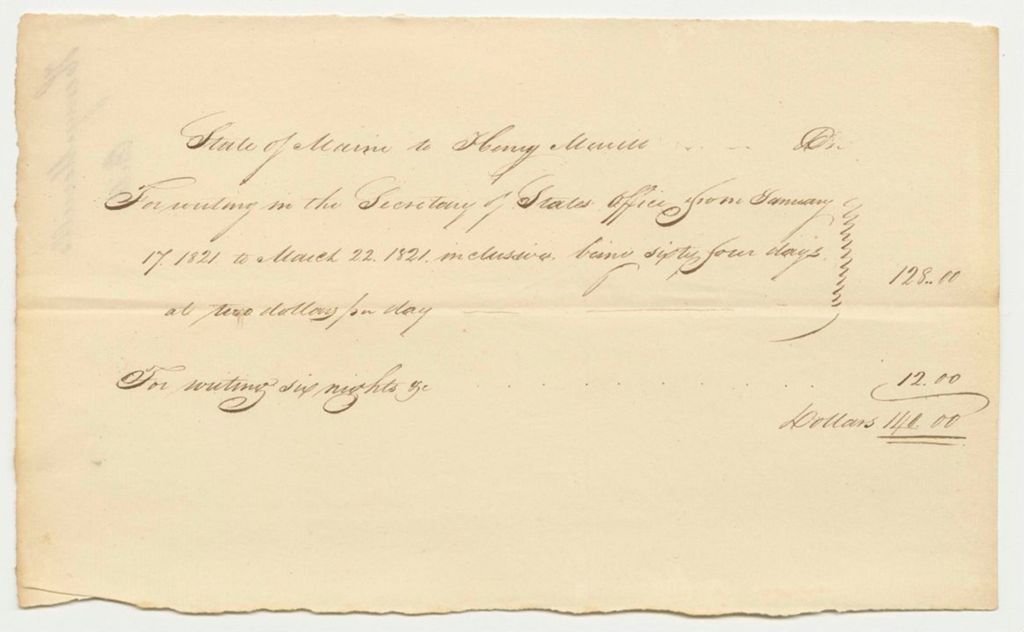 State of Maine to Henry Merrill Dr.
For writing in the Secretary of States Office, from January
17. 1821 to March 22. 1821. inclusive. being sixty four days
at two dollars per day
128.00
For writing six nights &c 12.00
Dollars 140.00